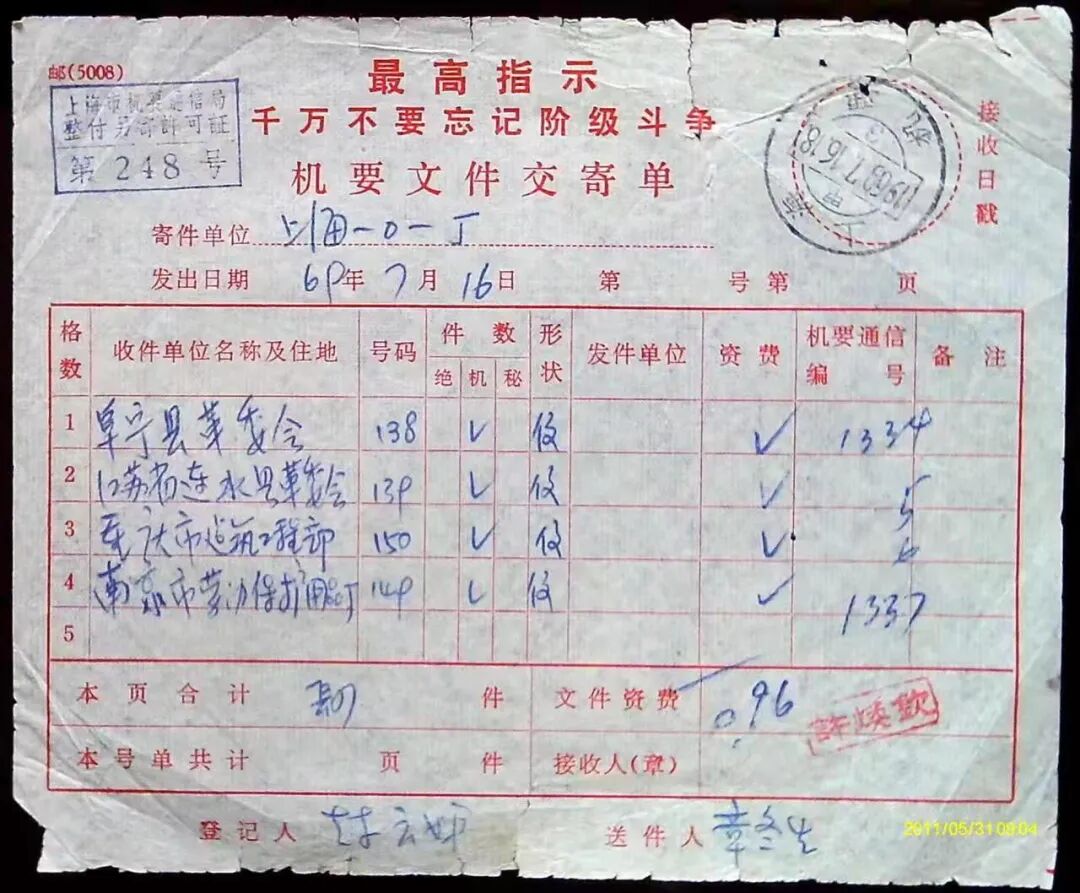 邮(5008)
上海市机要通信局
整付另部許可証
第 248 号
最高指示
千万不要忘记阶级斗争
机要文件交寄单
接收日戳
上海
1969.7.16.18
寄件单位 上海一〇一厂
发出日期 69年 7月 16日 第 号第 页
格数 收件单位名称及住地 号码 件数 形状 发件单位 资费 机要通信编号 备注
绝 机 秘
1 阜宁县革委会 138 ✓ ✓ 1334
2 江苏省涟水县革委会 139 ✓ ✓ 5
3 重庆市建筑工程部 150 ✓ ✓ 6
4 南京市劳动保护用品厂 149 ✓ ✓ 1337
5
本页合计 件 文件资费 0.96
本号单共计 页 件 接收人(章)
登记人 送件人 章冬生
2011/05/31 09:04